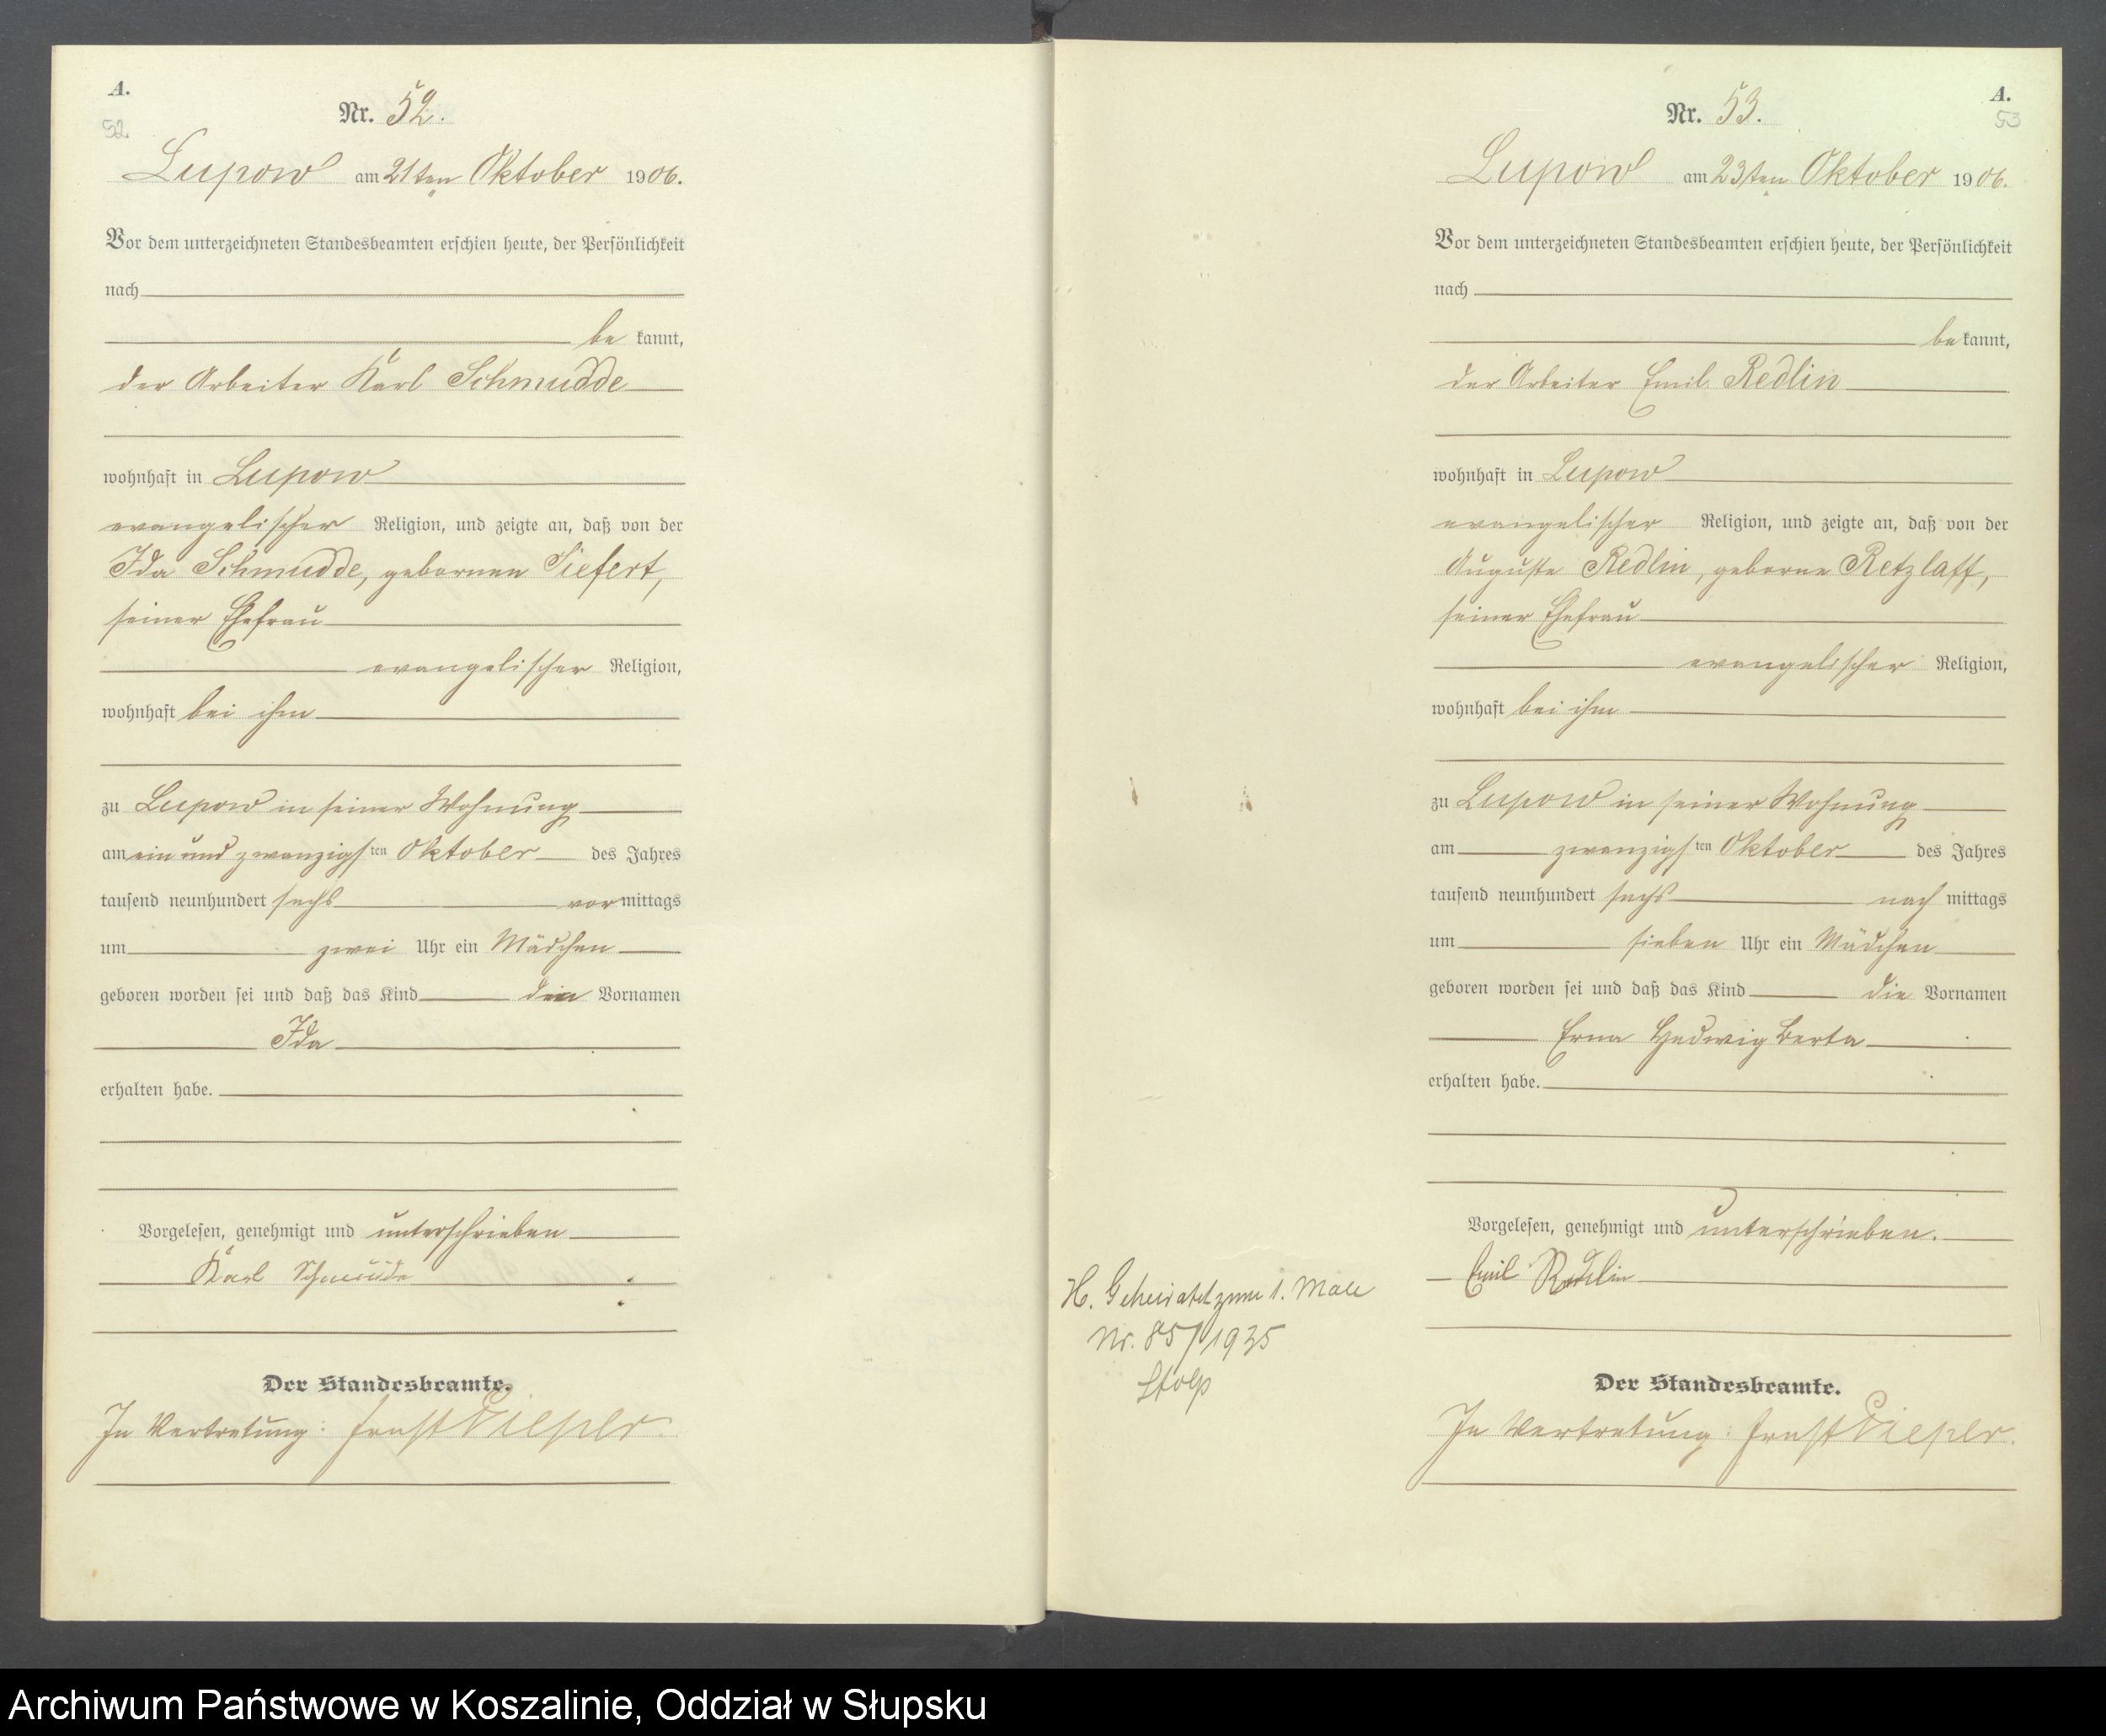 A.
52
Nr. 52.
Lupow am 21ten Oktober 1906.
Vor dem unterzeichneten Standesbeamten erschien heute, der Persönlichkeit
nach
be kannt,
der Arbeiter Karl Schmudde
wohnhaft in Lupow
evangelischer Religion, und zeigte an, daß von der
Ida Schmudde, gebornen Siefert,
seiner Ehefrau
evangelischer Religion,
wohnhaft bei ihm
zu Lupow in seiner Wohnung
am ein und zwanzigsten Oktober des Jahres
tausend neunhundert sechs vormittags
um zwei Uhr ein Mädchen
geboren worden sei und daß das Kind den Vornamen
Ida
erhalten habe.
Vorgelesen, genehmigt und unterschrieben
Karl Schmudde
Der Standesbeamte.
In Vertretung: Ernst Pieper.
A.
53
Nr. 53.
Lupow am 23ten Oktober 1906.
Vor dem unterzeichneten Standesbeamten erschien heute, der Persönlichkeit
nach
be kannt,
der Arbeiter Emil Redlin
wohnhaft in Lupow
evangelischer Religion, und zeigte an, daß von der
Auguste Redlin, geborne Retzlaff,
seiner Ehefrau
evangelischer Religion,
wohnhaft bei ihm
zu Lupow in seiner Wohnung
am zwanzigsten Oktober des Jahres
tausend neunhundert sechs nach mittags
um sieben Uhr ein Mädchen
geboren worden sei und daß das Kind die Vornamen
Erna Hedwig Berta
erhalten habe.
Vorgelesen, genehmigt und unterschrieben.
Emil Redlin
Der Standesbeamte.
In Vertretung: Ernst Pieper.
H. Geheiratet zum 1. Male
Nr. 85/1935
Stolp
Archiwum Państwowe w Koszalinie, Oddział w Słupsku